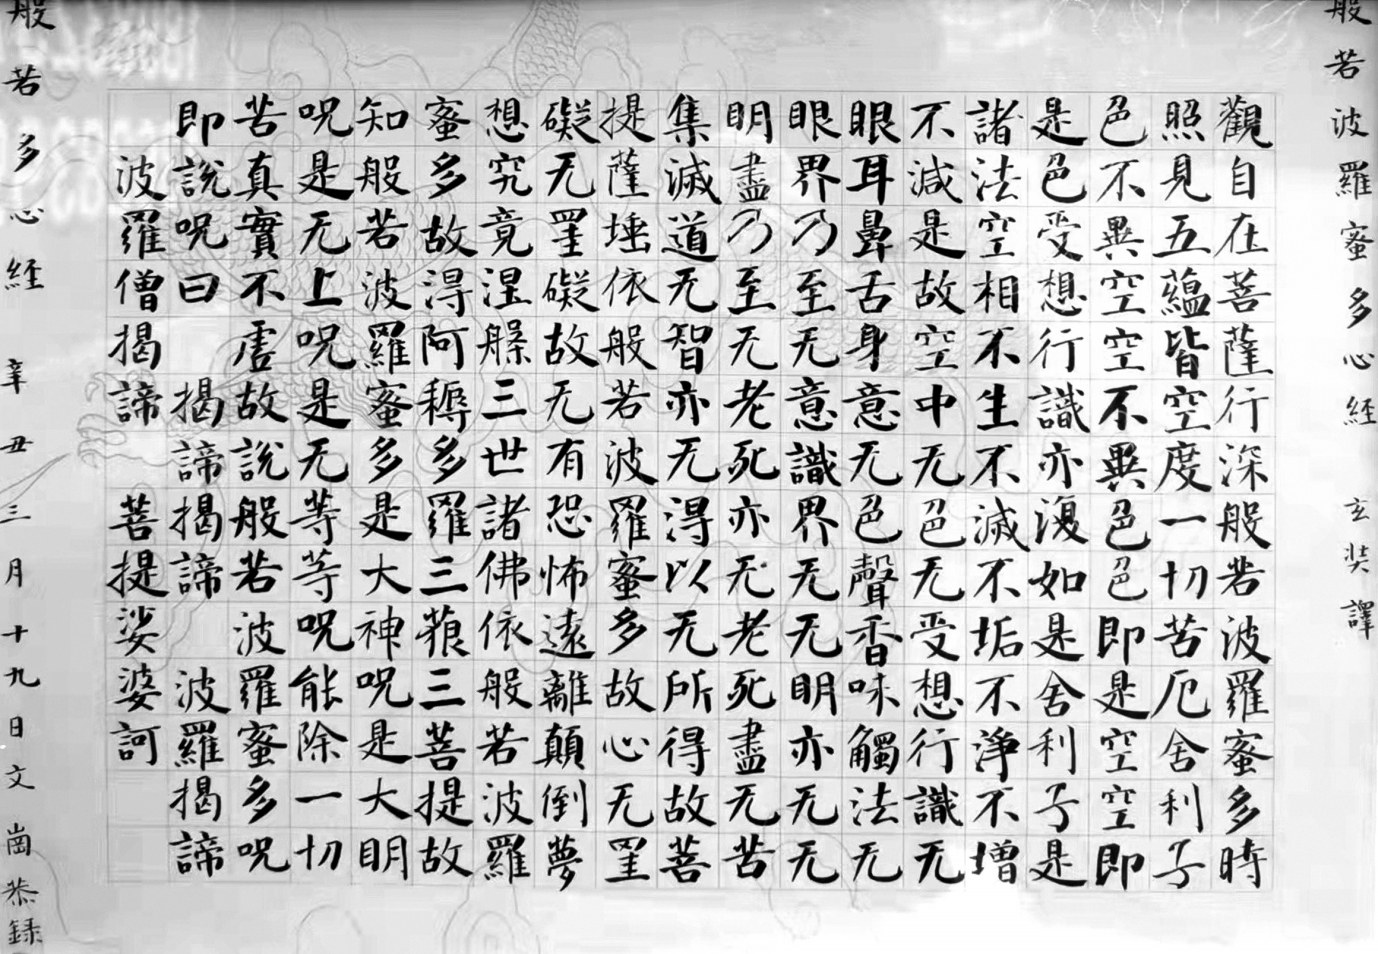 般若波羅蜜多心経 玄奘譯
觀自在菩薩行深般若波羅蜜多時
照見五蘊皆空度一切苦厄舍利子
色不異空空不異色色即是空空即
是色受想行識亦復如是舍利子是
諸法空相不生不滅不垢不淨不增
不減是故空中无色无受想行識无
眼耳鼻舌身意无色聲香味觸法无
眼界乃至无意識界无无明亦无无
明盡乃至无老死亦无老死盡无苦
集滅道无智亦无得以无所得故菩
提薩埵依般若波羅蜜多故心无罣
礙无罣礙故无有恐怖遠離顛倒夢
想究竟涅槃三世諸佛依般若波羅
蜜多故得阿耨多羅三藐三菩提故
知般若波羅蜜多是大神呪是大明
呪是无上呪是无等等呪能除一切
苦真實不虛故說般若波羅蜜多呪
即說呪曰 揭諦揭諦 波羅揭諦
波羅僧揭諦 菩提娑婆訶
般若多心経 辛丑三月十九日文崗恭録